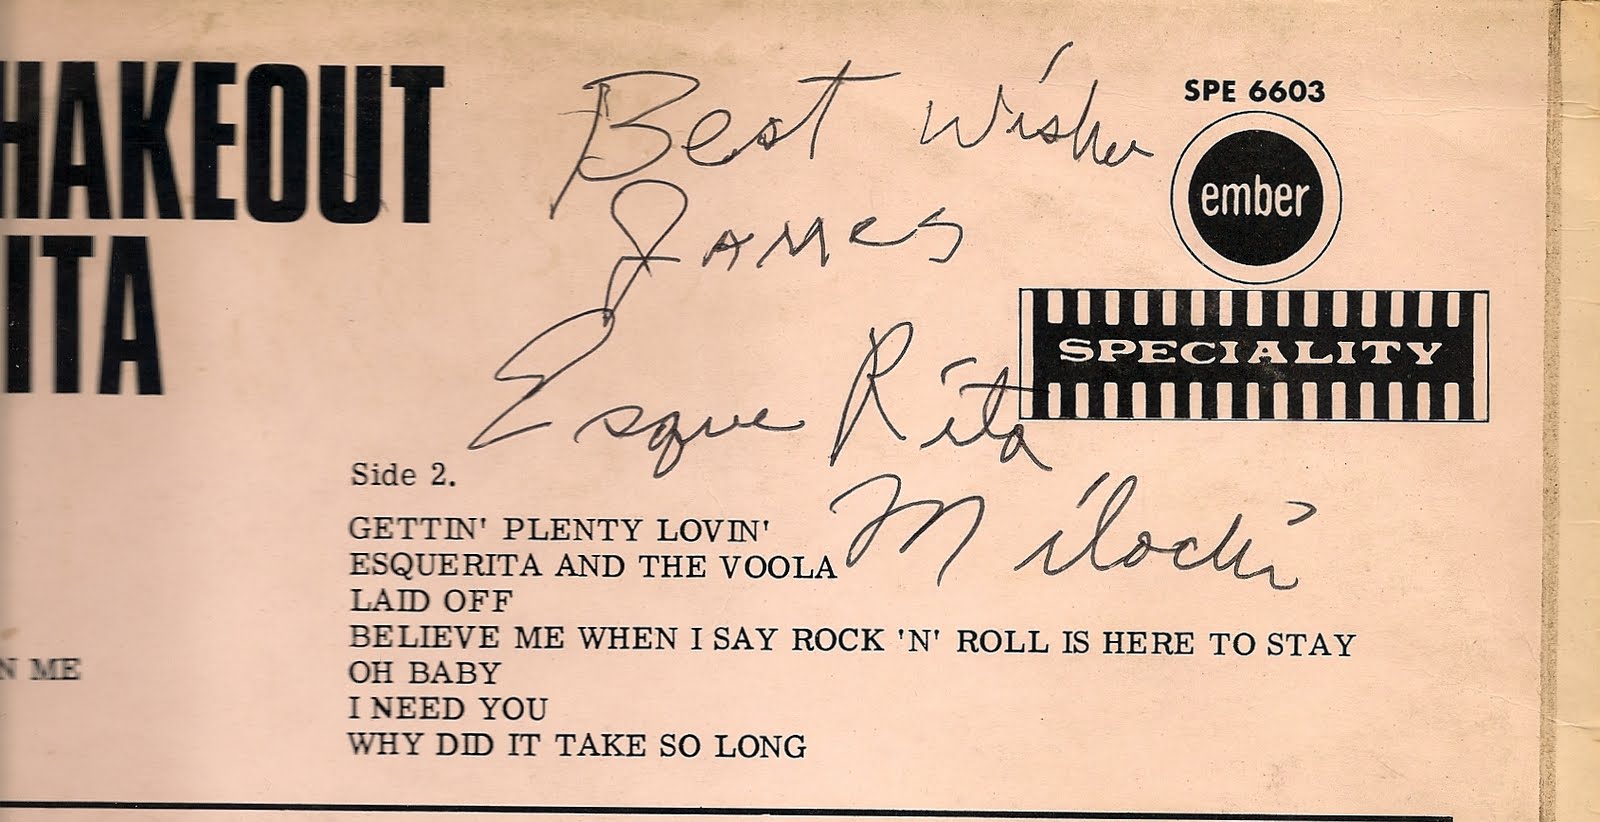 HAKEOUT
ITA
Best Wishes
James
Esque Rita
Milochi
SPE 6603
ember
SPECIALITY
Side 2.
GETTIN' PLENTY LOVIN'
ESQUERITA AND THE VOOLA
LAID OFF
BELIEVE ME WHEN I SAY ROCK 'N' ROLL IS HERE TO STAY
OH BABY
I NEED YOU
WHY DID IT TAKE SO LONG
N ME